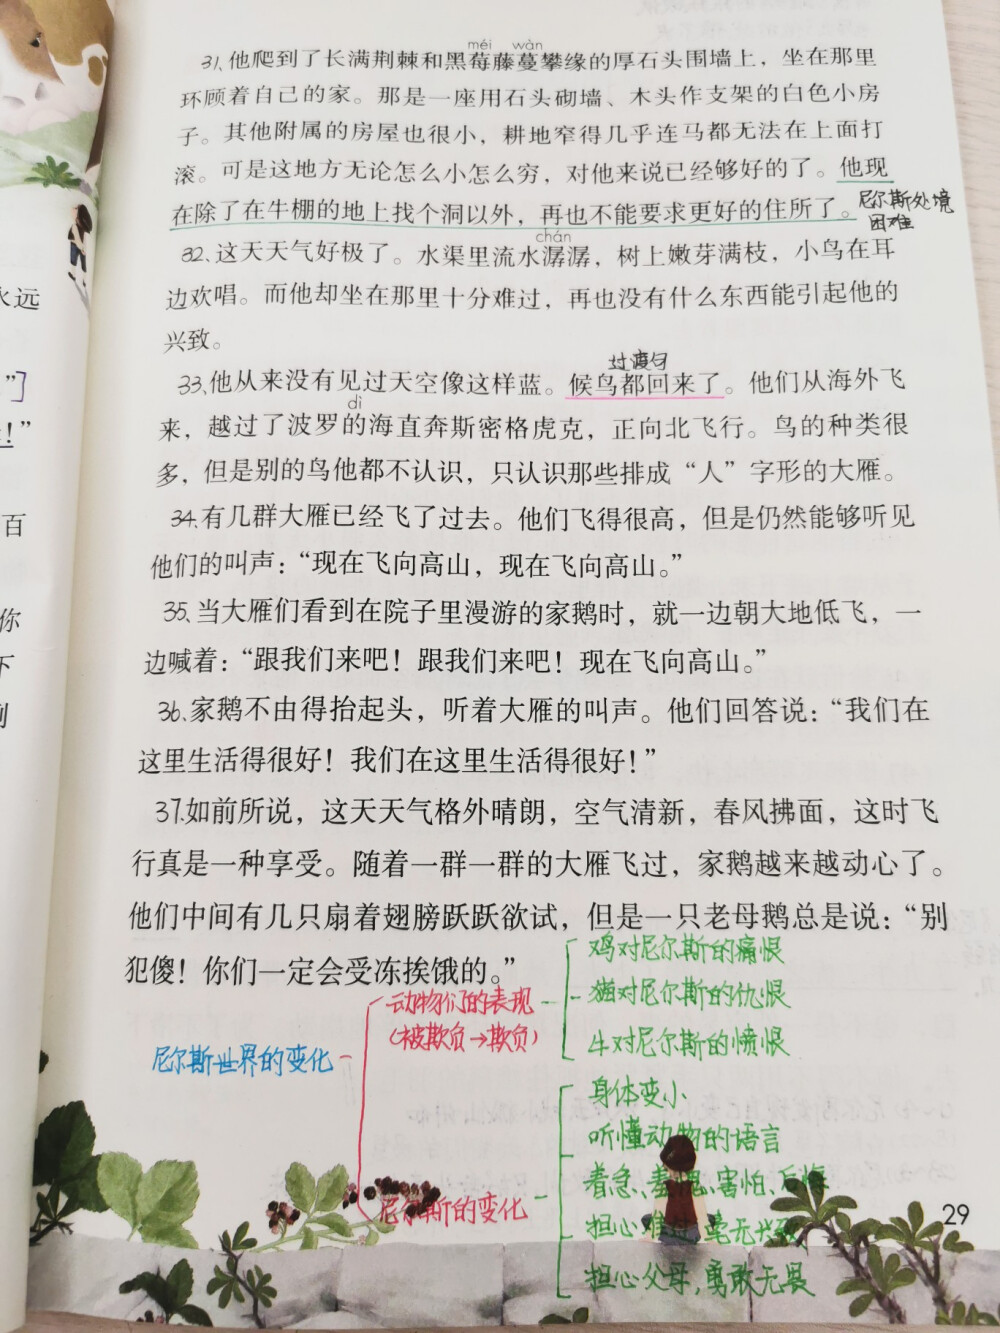 méi wàn
31、他爬到了长满荆棘和黑莓藤蔓攀缘的厚石头围墙上，坐在那里
环顾着自己的家。那是一座用石头砌墙、木头作支架的白色小房
子。其他附属的房屋也很小，耕地窄得几乎连马都无法在上面打
滚。可是这地方无论怎么小怎么穷，对他来说已经够好的了。他现
在除了在牛棚的地上找个洞以外，再也不能要求更好的住所了。
尼尔斯处境
困难
chán
32、这天天气好极了。水渠里流水潺潺，树上嫩芽满枝，小鸟在耳
边欢唱。而他却坐在那里十分难过，再也没有什么东西能引起他的
兴致。
过渡句
33、他从来没有见过天空像这样蓝。候鸟都回来了。他们从海外飞
dì
来，越过了波罗的海直奔斯密格虎克，正向北飞行。鸟的种类很
多，但是别的鸟他都不认识，只认识那些排成“人”字形的大雁。
34、有几群大雁已经飞了过去。他们飞得很高，但是仍然能够听见
他们的叫声：“现在飞向高山，现在飞向高山。”
35、当大雁们看到在院子里漫游的家鹅时，就一边朝大地低飞，一
边喊着：“跟我们来吧！跟我们来吧！现在飞向高山。”
36、家鹅不由得抬起头，听着大雁的叫声。他们回答说：“我们在
这里生活得很好！我们在这里生活得很好！”
37、如前所说，这天天气格外晴朗，空气清新，春风拂面，这时飞
行真是一种享受。随着一群一群的大雁飞过，家鹅越来越动心了。
他们中间有几只扇着翅膀跃跃欲试，但是一只老母鹅总是说：“别
犯傻！你们一定会受冻挨饿的。”
尼尔斯世界的变化
动物们的表现
（被欺负→欺负）
鸡对尼尔斯的痛恨
猫对尼尔斯的仇恨
牛对尼尔斯的愤恨
尼尔斯的变化
身体变小
听懂动物的语言
着急、羞愧、害怕、后悔
担心难过、毫无兴致
担心父母，勇敢无畏
29
永远
”]
！”
百
你
下